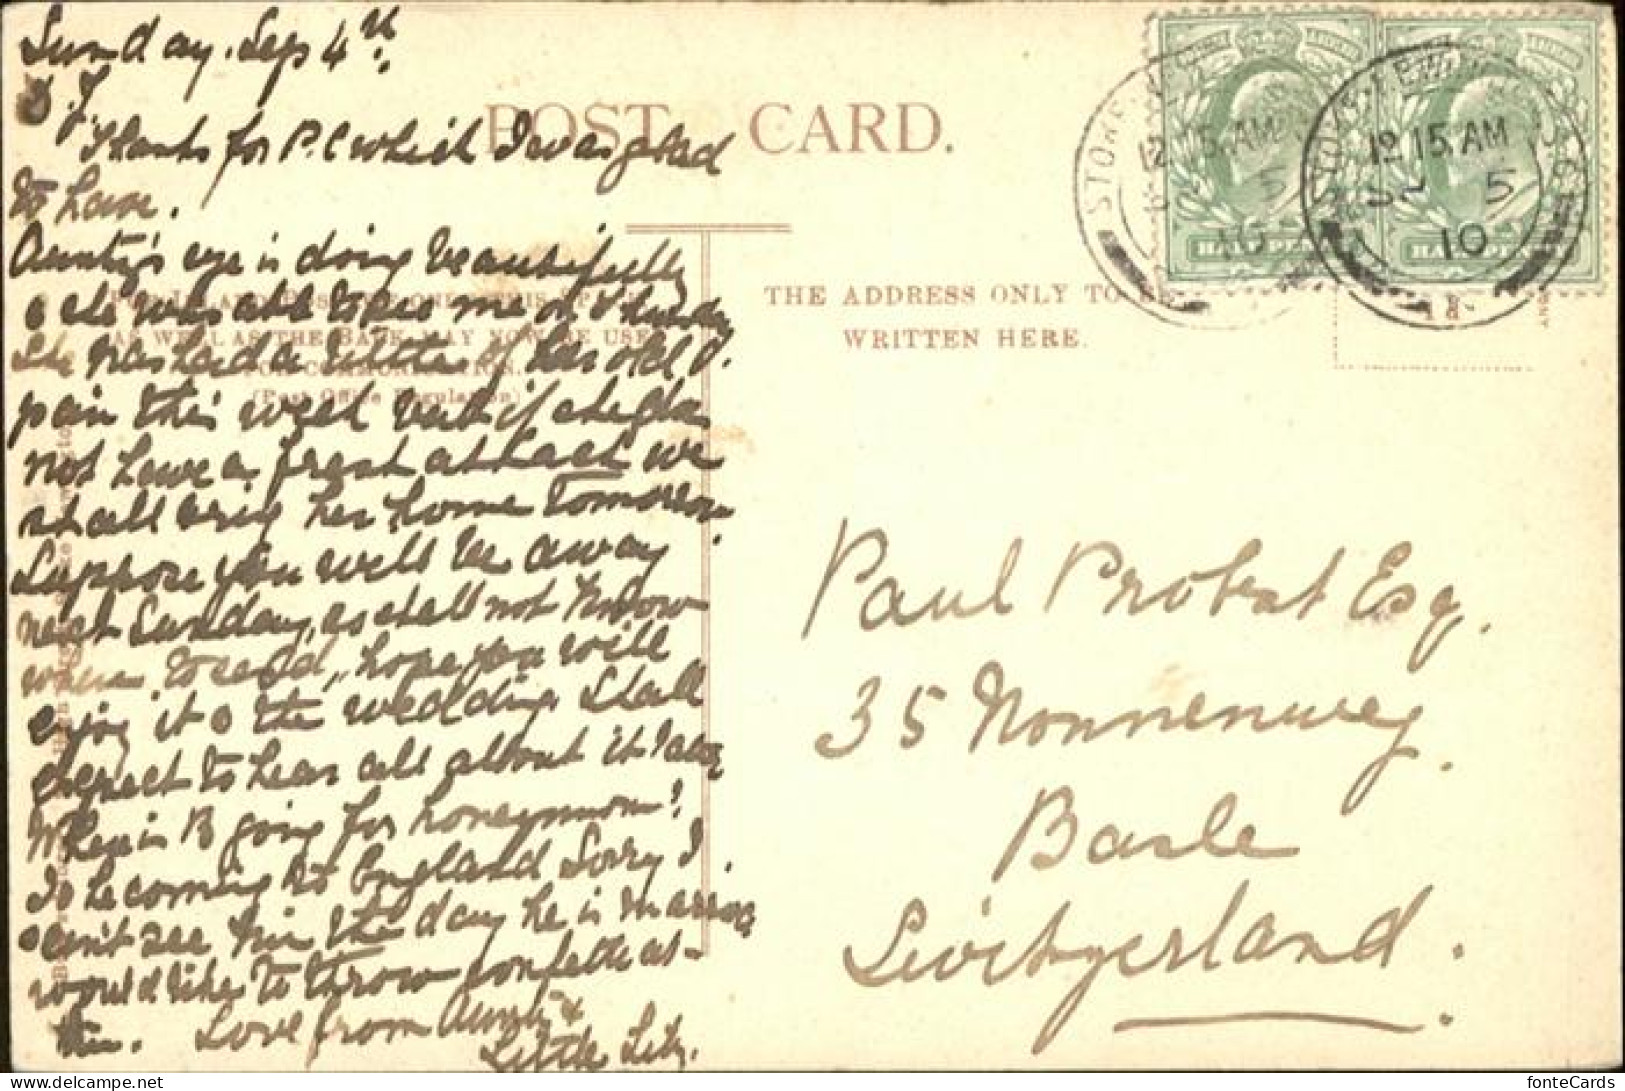 Sunday. Sep 4th.
D. J.
Thanks for P.C which I was glad
to have.
Aunty's eye is doing beautifully
& she was able to see me on Thursday
She has had a little of her old
pain this week but if she does
not have a fresh attack we
shall bring her home tomorrow.
Suppose you will be away
next Sunday, as shall not know
where to send, hope you will
enjoy it & the wedding. Shall
expect to hear all about it later
Where is B going for honeymoon?
Is he coming to England Sorry I
can't see him the day he is married
would like to throw confetti at
him. Love from Aunty &
Little Lily.
POST CARD.
FOR INLAND POSTAGE ONLY THIS SPACE
AS WELL AS THE BACK MAY NOW BE USED
FOR COMMUNICATION.
(Post Office Regulation)
THE ADDRESS ONLY TO BE
WRITTEN HERE.
Paul Probst Esq.
35 Nonnenweg.
Basle
Switzerland.
HALFPENNY
HALFPENNY
STOKE
12 15 AM
SP 5
10
12 15 AM
SP 5
10
fonteCards